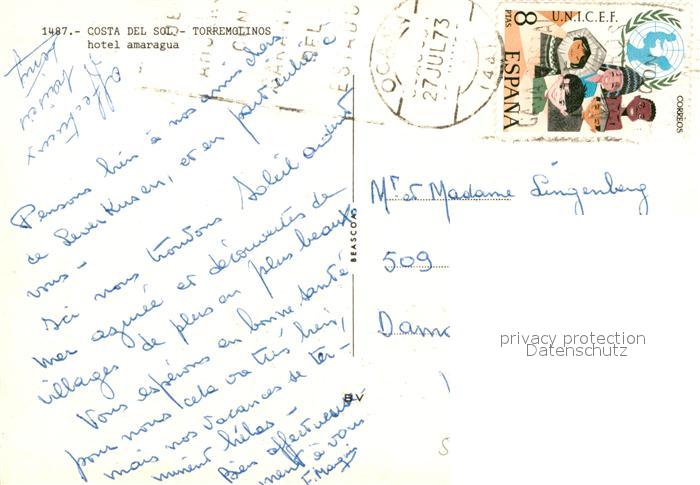 1487.- COSTA DEL SOL.- TORREMOLINOS
hotel amaragua
Affectueux
Pensons bien à nos amis chers
de Leverkusen, et en particulier à
vous -
Ici nous trouvons Soleil ardent
mer azurée et découvertes de
villages de plus en plus beaux
Vous espérons en bonne santé
pour nous cela va très bien,
mais nos vacances se ter-
minent hélas -
Bien affectueuse-
ment à vous
BEASCOA
B.V
27 JUL 73
8
PTAS
U.N.I.C.E.F.
ESPAÑA
CORREOS
Mr et Madame Lingenberg
509
privacy protection
Datenschutz